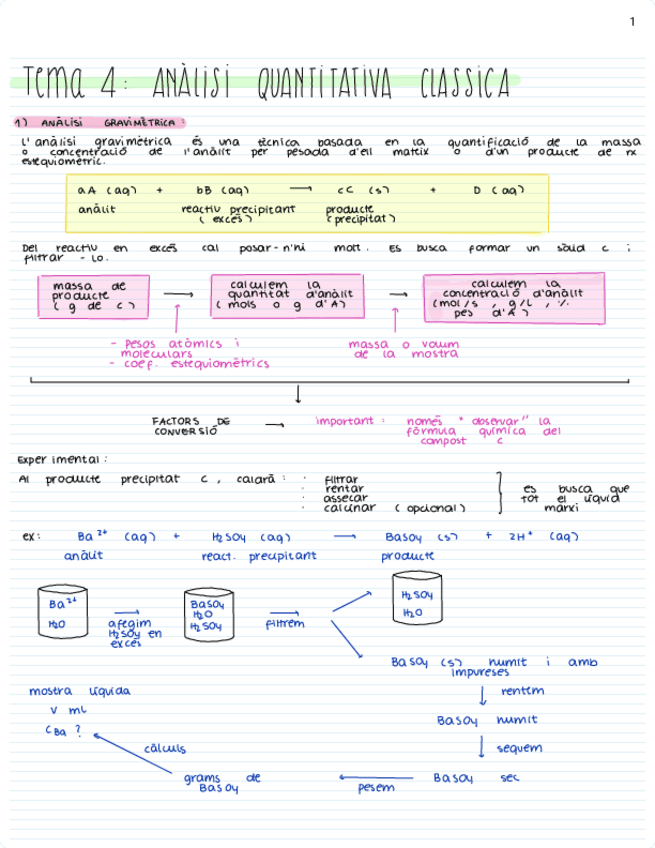 1
Tema 4: ANÀLISI QUANTITATIVA CLASSICA
1) ANÀLISI GRAVIMÈTRICA:
L'anàlisi gravimètrica és una tècnica basada en la quantificació de la massa
o concentració de l'anàlit per pesada d'ell mateix o d'un producte de rx
estequiomètric.
aA (aq) + bB (aq) → cC (s) + D (aq)
anàlit reactiu precipitant producte
(excés) (precipitat)
Del reactiu en excés cal posar-n'hi molt. Es busca formar un sòlid C i
filtrar-lo.
massa de producte (g de C) → calculem la quantitat d'anàlit (mols o g d'A) → calculem la concentració d'anàlit (mol/s, g/L, %. pes d'A)
- Pesos atòmics i moleculars
- coef. estequiomètrics
massa o volum
de la mostra
FACTORS DE CONVERSIÓ → important: només "observar" la
fórmula química del
compost C
Experimental:
Al producte precipitat C, calarà: · filtrar
· rentar
· assecar
· calcinar (opcional)
es busca que
tot el líquid
marxi
ex: Ba²⁺ (aq) + H₂SO₄ (aq) → BaSO₄ (s) + 2H⁺ (aq)
anàlit react. precipitant producte
Ba²⁺
H₂O
afegim
H₂SO₄ en
excés
BaSO₄
H₂O
H₂SO₄
filtrem
H₂SO₄
H₂O
BaSO₄ (s) humit i amb
impureses
rentem
BaSO₄ humit
sequem
BaSO₄ sec
pesem
grams de
BaSO₄
càlculs
mostra líquida
V mL
CBa ?